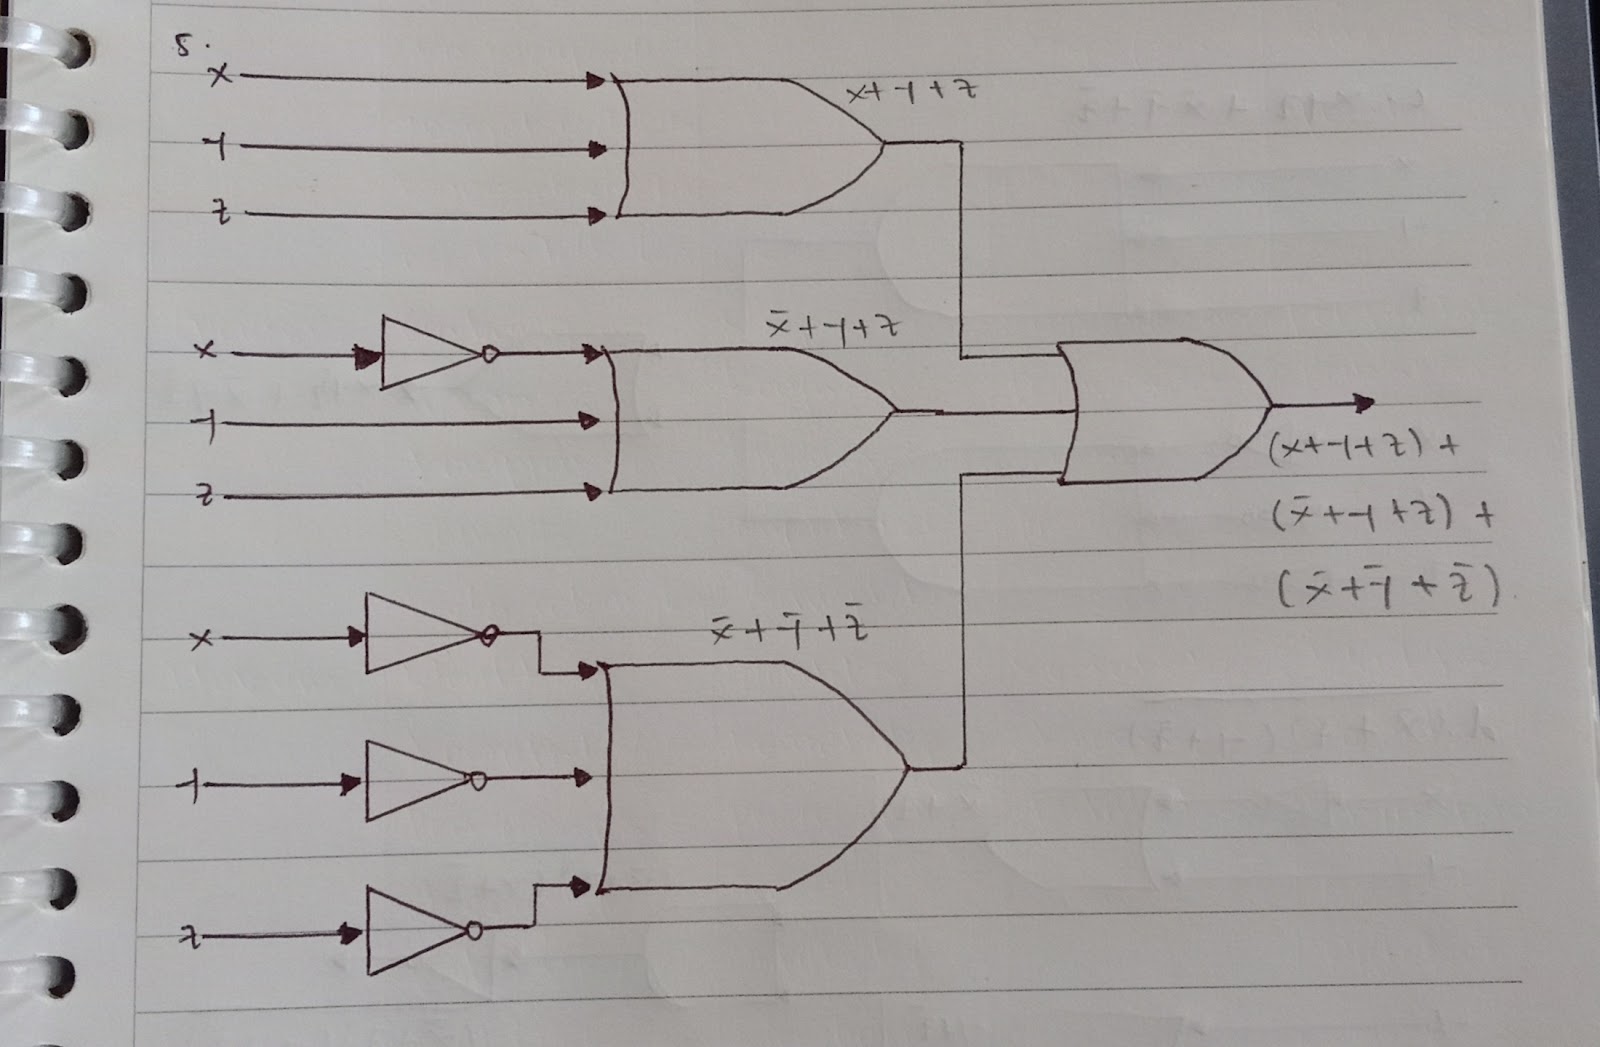 5.
x
y
z
x+y+z
x
y
z
x̄+y+z
(x+y+z) +
(x̄+y+z) +
(x̄+ȳ+z̄)
x
y
z
x̄+ȳ+z̄